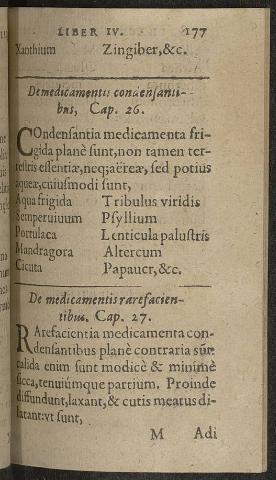 LIBER IV. 177
Xanthium Zingiber, &c.
De medicamentis condensanti-
bus, Cap. 26.
COndensantia medicamenta fri-
gida planè sunt, non tamen ter-
restris essentiæ, neq; aëreæ, sed potius
aqueæ, cuiusmodi sunt,
Aqua frigida Tribulus viridis
Semperuiuum Psyllium
Portulaca Lenticula palustris
Mandragora Altercum
Cicuta Papauer, &c.
De medicamentis rarefacien-
tibus. Cap. 27.
RArefacientia medicamenta con-
densantibus planè contraria sũt
calida enim sunt modicè & minimè
sicca, tenuiúmque partium. Proinde
diffundunt, laxant, & cutis meatus di-
latant: vt sunt,
M Adi